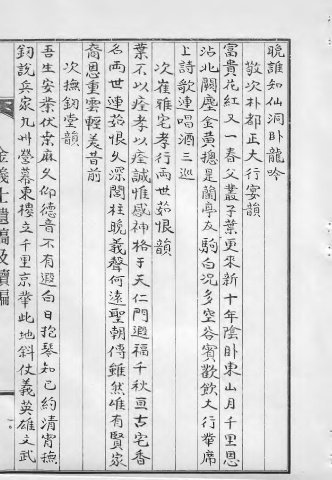 晩誰知仙洞卧龍吟
敬次朴都正大行宴韻
富貴花紅又一春父叢子葉更來新十年陰卧東山月千里恩
沾北闕塵金黃摠是蘭亭友駒白况多空谷賓歡飮大行華席
上詩歌連唱酒三巡
次崔雅宅孝行兩世茹恨韻
葉不以痊孝以痊誠惟感神格于天仁門遐福千秋亘古宅香
名兩世連茹恨久深閭柱晩義聲何遠聖朝傳雖然唯有賢家
裔恩重雲輕美昔前
次撫釖堂韻
吾生安業伏嵩麻久仰德音不有遐白日抱琴知已約清宵撫
釖說兵家九州營幕東樓之千里京華此地斜仗義英雄文武
金義士遺稿及續編